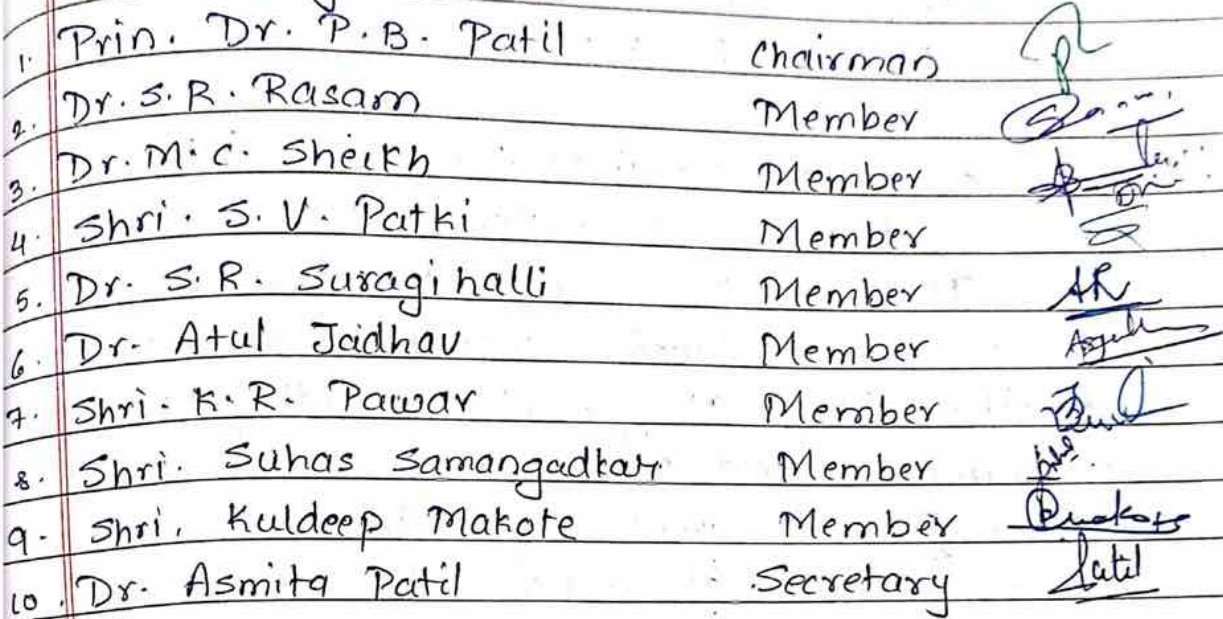 1. Prin. Dr. P. B. Patil Chairman
2. Dr. S. R. Rasam Member
3. Dr. M. C. Sheikh Member
4. Shri. S. V. Patki Member
5. Dr. S. R. Suragihalli Member AR
6. Dr. Atul Jadhav Member
7. Shri. K. R. Pawar Member
8. Shri. Suhas Samangadkar Member
9. Shri. Kuldeep Makote Member
10. Dr. Asmita Patil Secretary Patil